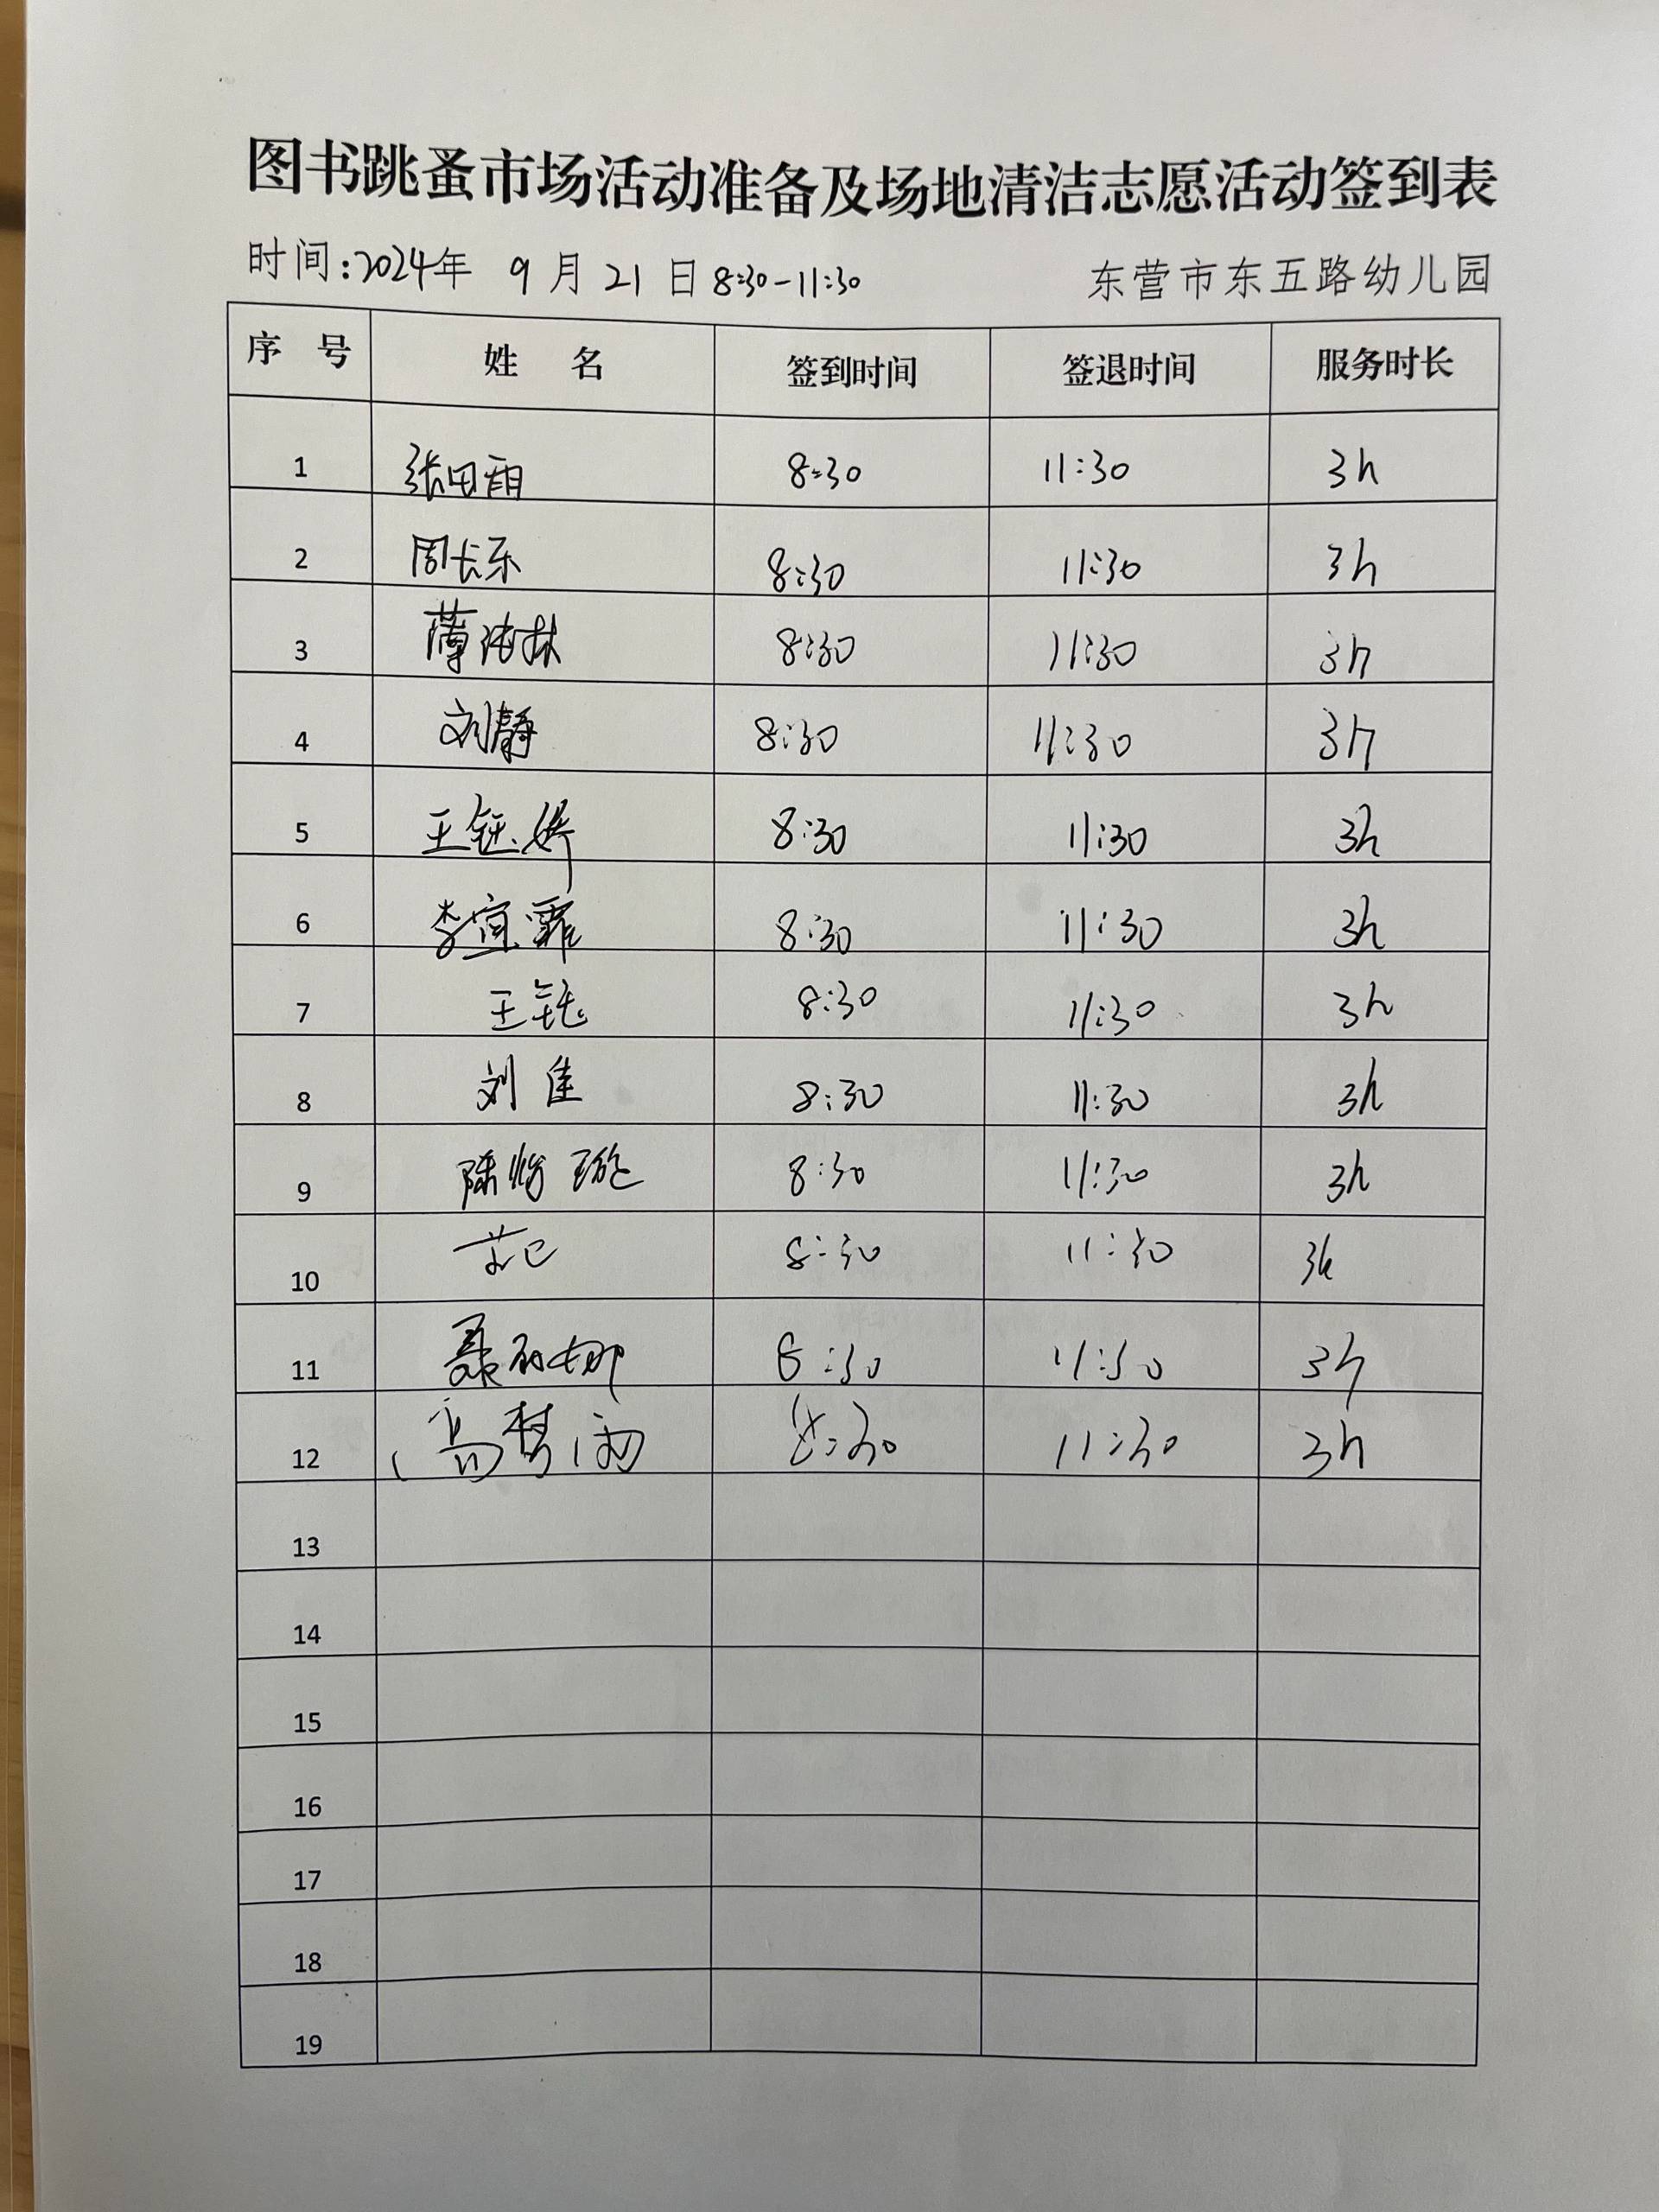 图书跳蚤市场活动准备及场地清洁志愿活动签到表
时间:2024年 9 月 21 日 8:30-11:30 东营市东五路幼儿园
序 号 姓 名 签到时间 签退时间 服务时长
1 张田雨 8:30 11:30 3h
2 周长乐 8:30 11:30 3h
3 薄洁林 8:30 11:30 3h
4 刘静 8:30 11:30 3h
5 王钰婷 8:30 11:30 3h
6 李宜霏 8:30 11:30 3h
7 王钰 8:30 11:30 3h
8 刘佳 8:30 11:30 3h
9 陈怡璇 8:30 11:30 3h
10 8:30 11:30 3h
11 聂娜 8:30 11:30 3h
12 高梦雨 8:30 11:30 3h
13
14
15
16
17
18
19